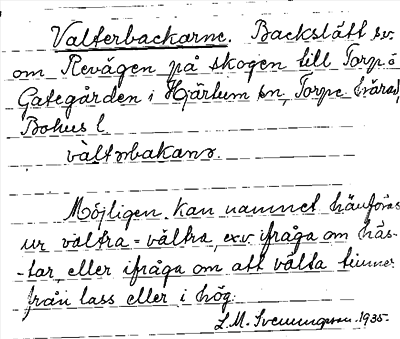 Valterbackarne. Backslätt sv.
om Revägen på skogen till Torp ö
Gategården i Hjärtum sn, Torpe härad,
Bohus l.
vàltərbakanə.
Möjligen kan namnet hänföras
ur valtra = vältra, ex.v. ifråga om häs-
-tar, eller ifråga om att välta timmer
från lass eller i hög.
L.M. Svenungsson. 1935.